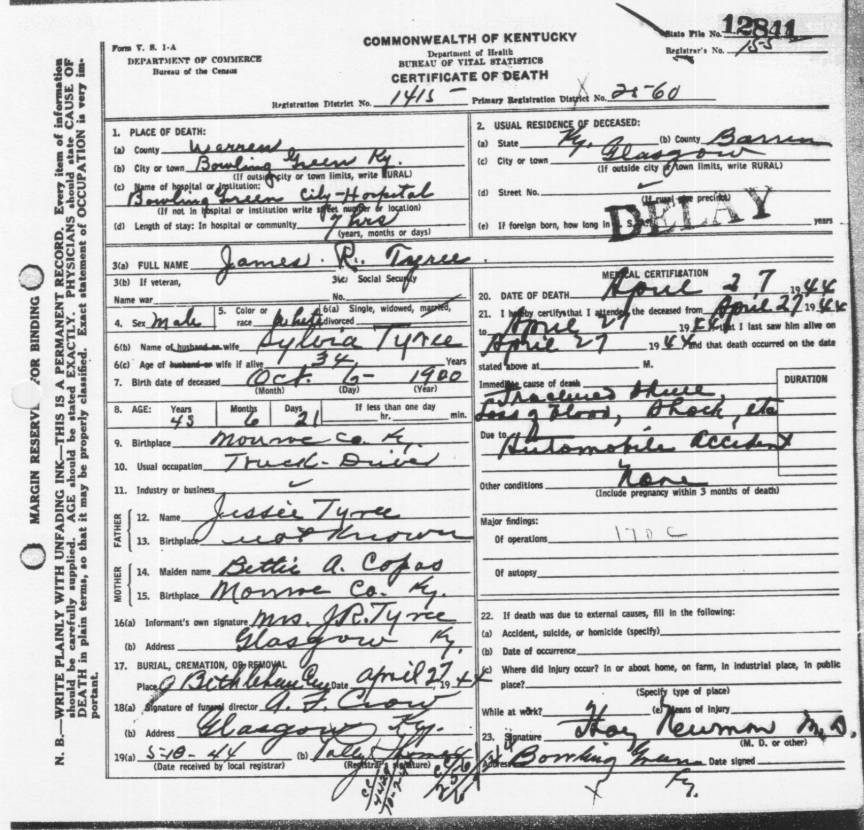 State File No. 12841
Form V. S. 1-A
COMMONWEALTH OF KENTUCKY
Registrar's No. 155
DEPARTMENT OF COMMERCE
Department of Health
Bureau of the Census
BUREAU OF VITAL STATISTICS
CERTIFICATE OF DEATH
Registration District No. 1415 Primary Registration District No. 2560
1. PLACE OF DEATH:
(a) County Warren
(b) City or town Bowling Green Ky.
(If outside city or town limits, write RURAL)
(c) Name of hospital or institution:
Bowling Green City-Hospital
(If not in hospital or institution write street number or location)
(d) Length of stay: In hospital or community hrs
(years, months or days)
2. USUAL RESIDENCE OF DECEASED:
(a) State Ky. (b) County Barren
(c) City or town Glasgow
(If outside city or town limits, write RURAL)
(d) Street No.
(If rural give precinct)
DELAY
(e) If foreign born, how long in U. S. A. years
3(a) FULL NAME James R. Tyree
3(b) If veteran,
Name war
3(c) Social Security
No.
4. Sex Male
5. Color or race white
6(a) Single, widowed, married, divorced
6(b) Name of husband or wife Sylvia Tyree
6(c) Age of husband or wife if alive 34 Years
7. Birth date of deceased Oct. 6- 1900
(Month) (Day) (Year)
8. AGE: Years 43 Months 6 Days 21 If less than one day hr. min.
9. Birthplace Monroe Co. Ky.
10. Usual occupation Truck-Driver
11. Industry or business
FATHER
12. Name Jessie Tyree
13. Birthplace not Known
MOTHER
14. Maiden name Bettie A. Copas
15. Birthplace Monroe Co. Ky.
16(a) Informant's own signature Mrs. J.R. Tyree
(b) Address Glasgow Ky.
17. BURIAL, CREMATION, OR REMOVAL
Place Bethlehem Date April 27, 1944
18(a) Signature of funeral director Crow
(b) Address Glasgow Ky.
19(a) 5-18-44 (b)
(Date received by local registrar) (Registrar's signature)
MEDICAL CERTIFICATION
20. DATE OF DEATH April 27 1944
21. I hereby certify that I attended the deceased from April 27 1944
to April 27 1944 that I last saw him alive on
April 27 1944 and that death occurred on the date
stated above at M.
Immediate cause of death
DURATION
Fractured
Loss of blood, Shock, etc
Due to Automobile Accident
Other conditions None
(Include pregnancy within 3 months of death)
Major findings:
Of operations 170c
Of autopsy
22. If death was due to external causes, fill in the following:
(a) Accident, suicide, or homicide (specify)
(b) Date of occurrence
(c) Where did injury occur? In or about home, on farm, in industrial place, in public
place?
(Specify type of place)
While at work? (e) Means of injury
23. Signature Hoy Newman M.D.
(M. D. or other)
Address Bowling Green Date signed
Ky.
MARGIN RESERVED FOR BINDING
N. B.—WRITE PLAINLY WITH UNFADING INK—THIS IS A PERMANENT RECORD. Every item of information
should be carefully supplied. AGE should be stated EXACTLY. PHYSICIANS should state CAUSE OF
DEATH in plain terms, so that it may be properly classified. Exact statement of OCCUPATION is very im-
portant.